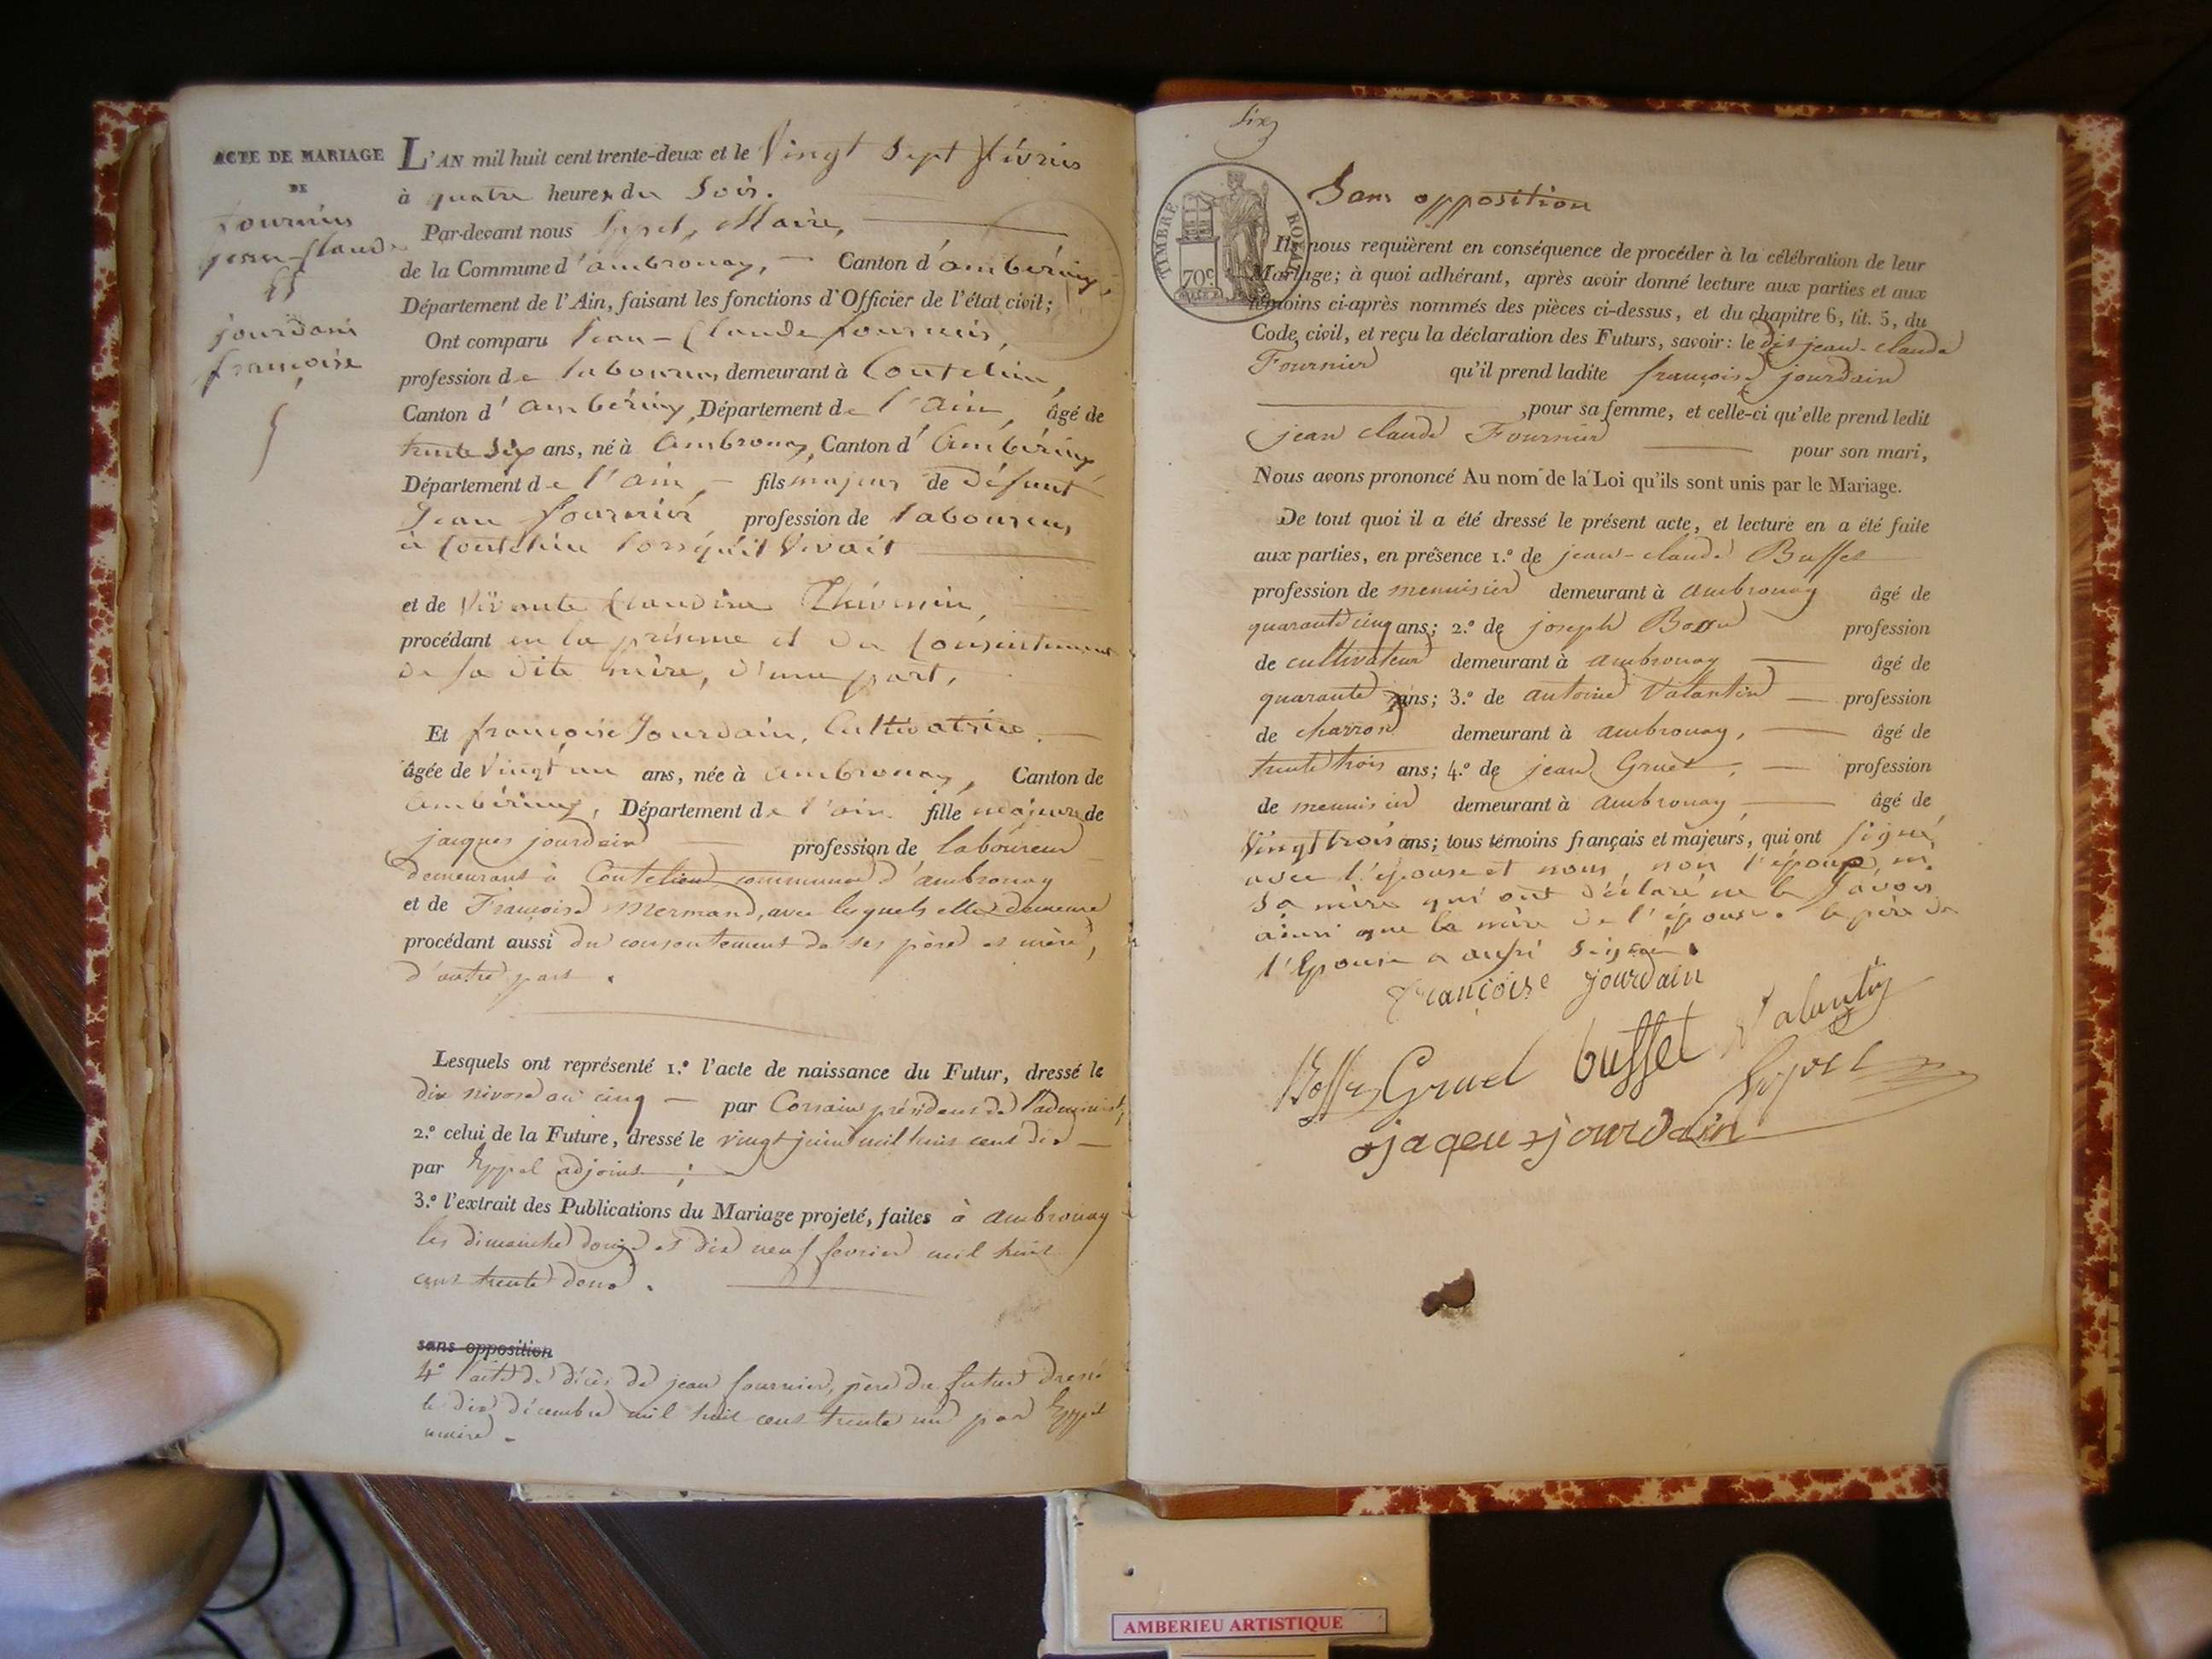 ACTE DE MARIAGE
DE
fournier
jean-claude
et
jourdain
françoise
L'AN mil huit cent trente-deux et le Vingt Sept février
à quatre heures du Soir.
Par-devant nous Eppel, Maire,
de la Commune d'ambronay, Canton d'ambérieux,
Département de l'Ain, faisant les fonctions d'Officier de l'état civil;
Ont comparu Jean-Claude fournier,
profession de laboureur, demeurant à Coutelieu,
Canton d'ambérieux, Département de l'ain, âgé de
trente Six ans, né à Ambronay, Canton d'Ambérieux
Département de l'ain, fils majeur de Défunt
Jean fournier profession de laboureur,
à Coutelieu lorsqu'il Vivait
et de Vivante Claudine Thévenin,
procédant en la présence et du Consentement
de sa dite mère, d'une part,
Et françoise Jourdain, Cultivatrice
âgée de Vingt un ans, née à ambronay, Canton de
ambérieux, Département de l'ain fille majeure de
jacques jourdain profession de laboureur
demeurant à Coutelieu commune d'ambronay
et de Françoise Mermand, avec lesquels elle demeure
procédant aussi du consentement de ses père et mère,
d'autre part.
Lesquels ont représenté 1.º l'acte de naissance du Futur, dressé le
dix nivose an cinq par président de l'administ,
2.º celui de la Future, dressé le vingt juin mil huit cent dix
par Eppel adjoint;
3.º l'extrait des Publications du Mariage projeté, faites à ambronay
les dimanche douze et dix neuf fevrier mil huit
cent trente deux.
sans opposition
4º l'acte de décès de jean fournier, père du futur dressé
le dix décembre mil huit cent trente un par Eppel
maire.
Six
TIMBRE ROYAL
70c.
Sans opposition
Ils nous requièrent en conséquence de procéder à la célébration de leur
Mariage; à quoi adhérant, après avoir donné lecture aux parties et aux
témoins ci-après nommés des pièces ci-dessus, et du chapitre 6, tit. 5, du
Code civil, et reçu la déclaration des Futurs, savoir: le dit jean-claude
Fournier qu'il prend ladite françoise jourdain
, pour sa femme, et celle-ci qu'elle prend ledit
jean claude Fournier pour son mari,
Nous avons prononcé Au nom de la Loi qu'ils sont unis par le Mariage.
De tout quoi il a été dressé le présent acte, et lecture en a été faite
aux parties, en présence 1.º de jean-claude Buffet
profession de menuisier demeurant à ambronay âgé de
quarante cinq ans; 2.º de joseph profession
de cultivateur demeurant à ambronay âgé de
quarante ans; 3.º de antoine Valantin profession
de charron demeurant à ambronay, âgé de
trente trois ans; 4.º de jean Gruel, profession
de menuisier demeurant à ambronay âgé de
Vingt trois ans; tous témoins français et majeurs, qui ont signé
avec l'épouse et nous, non l'époux, ni
sa mère qui ont déclaré ne le savoir
ainsi que la mère de l'épouse. le père de
l'Epouse a aussi signé.
françoise jourdain
Gruel buffet Valantin
Eppel
jaqeu jourdain
AMBERIEU ARTISTIQUE